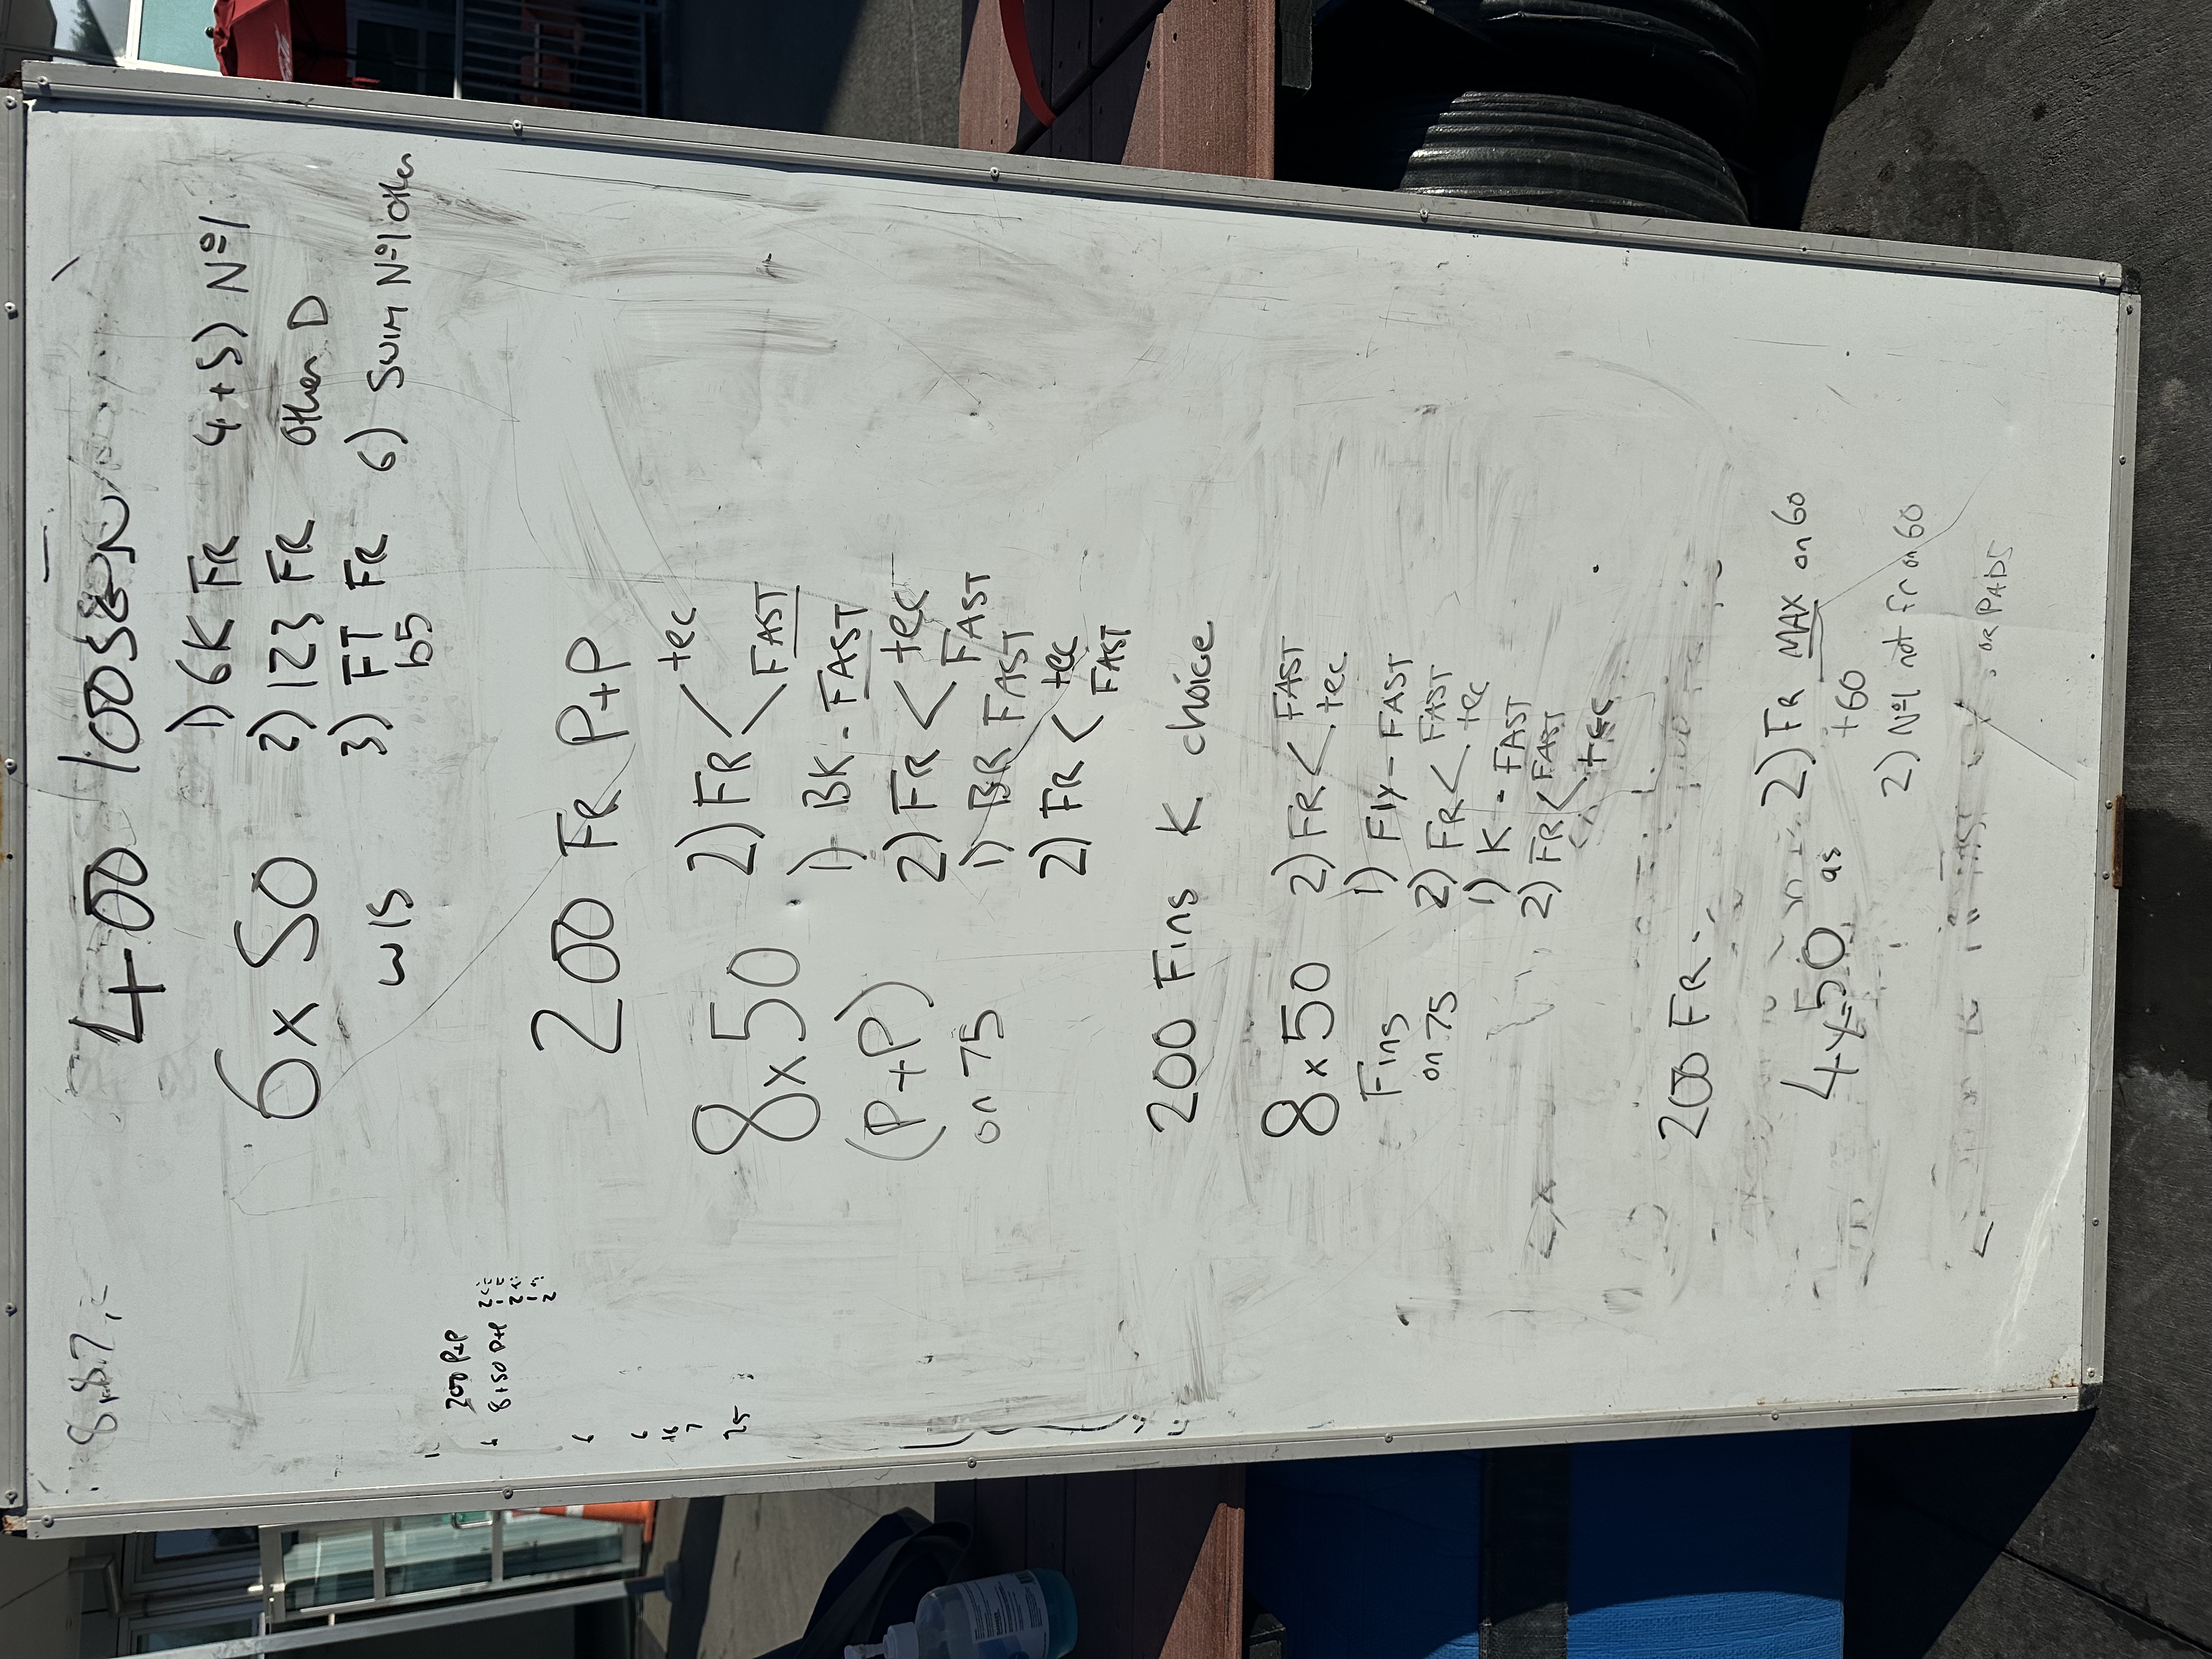 400
6 x 50 1) 6K FR 4+5) Nº1
2) 123 FR other D
w15 3) FT FR 6) Swim Nº1 other
b5
200 FR P+P
8 x 50 2) FR < tec
FAST
(P+P) 1) BK - FAST
on 75 2) FR < tec
FAST
1) BR FAST
2) FR < tec
FAST
200 Fins K choice
8 x 50 2) FR < FAST
tec
Fins 1) Fly - FAST
on 75 2) FR < FAST
tec
1) K - FAST
2) FR < FAST
tec
200 FR
4 x 50 as 2) FR MAX on 60
+60
2) Nº1 not fr on 60
or PADS
200 P+P
8 x 50 P+P
25